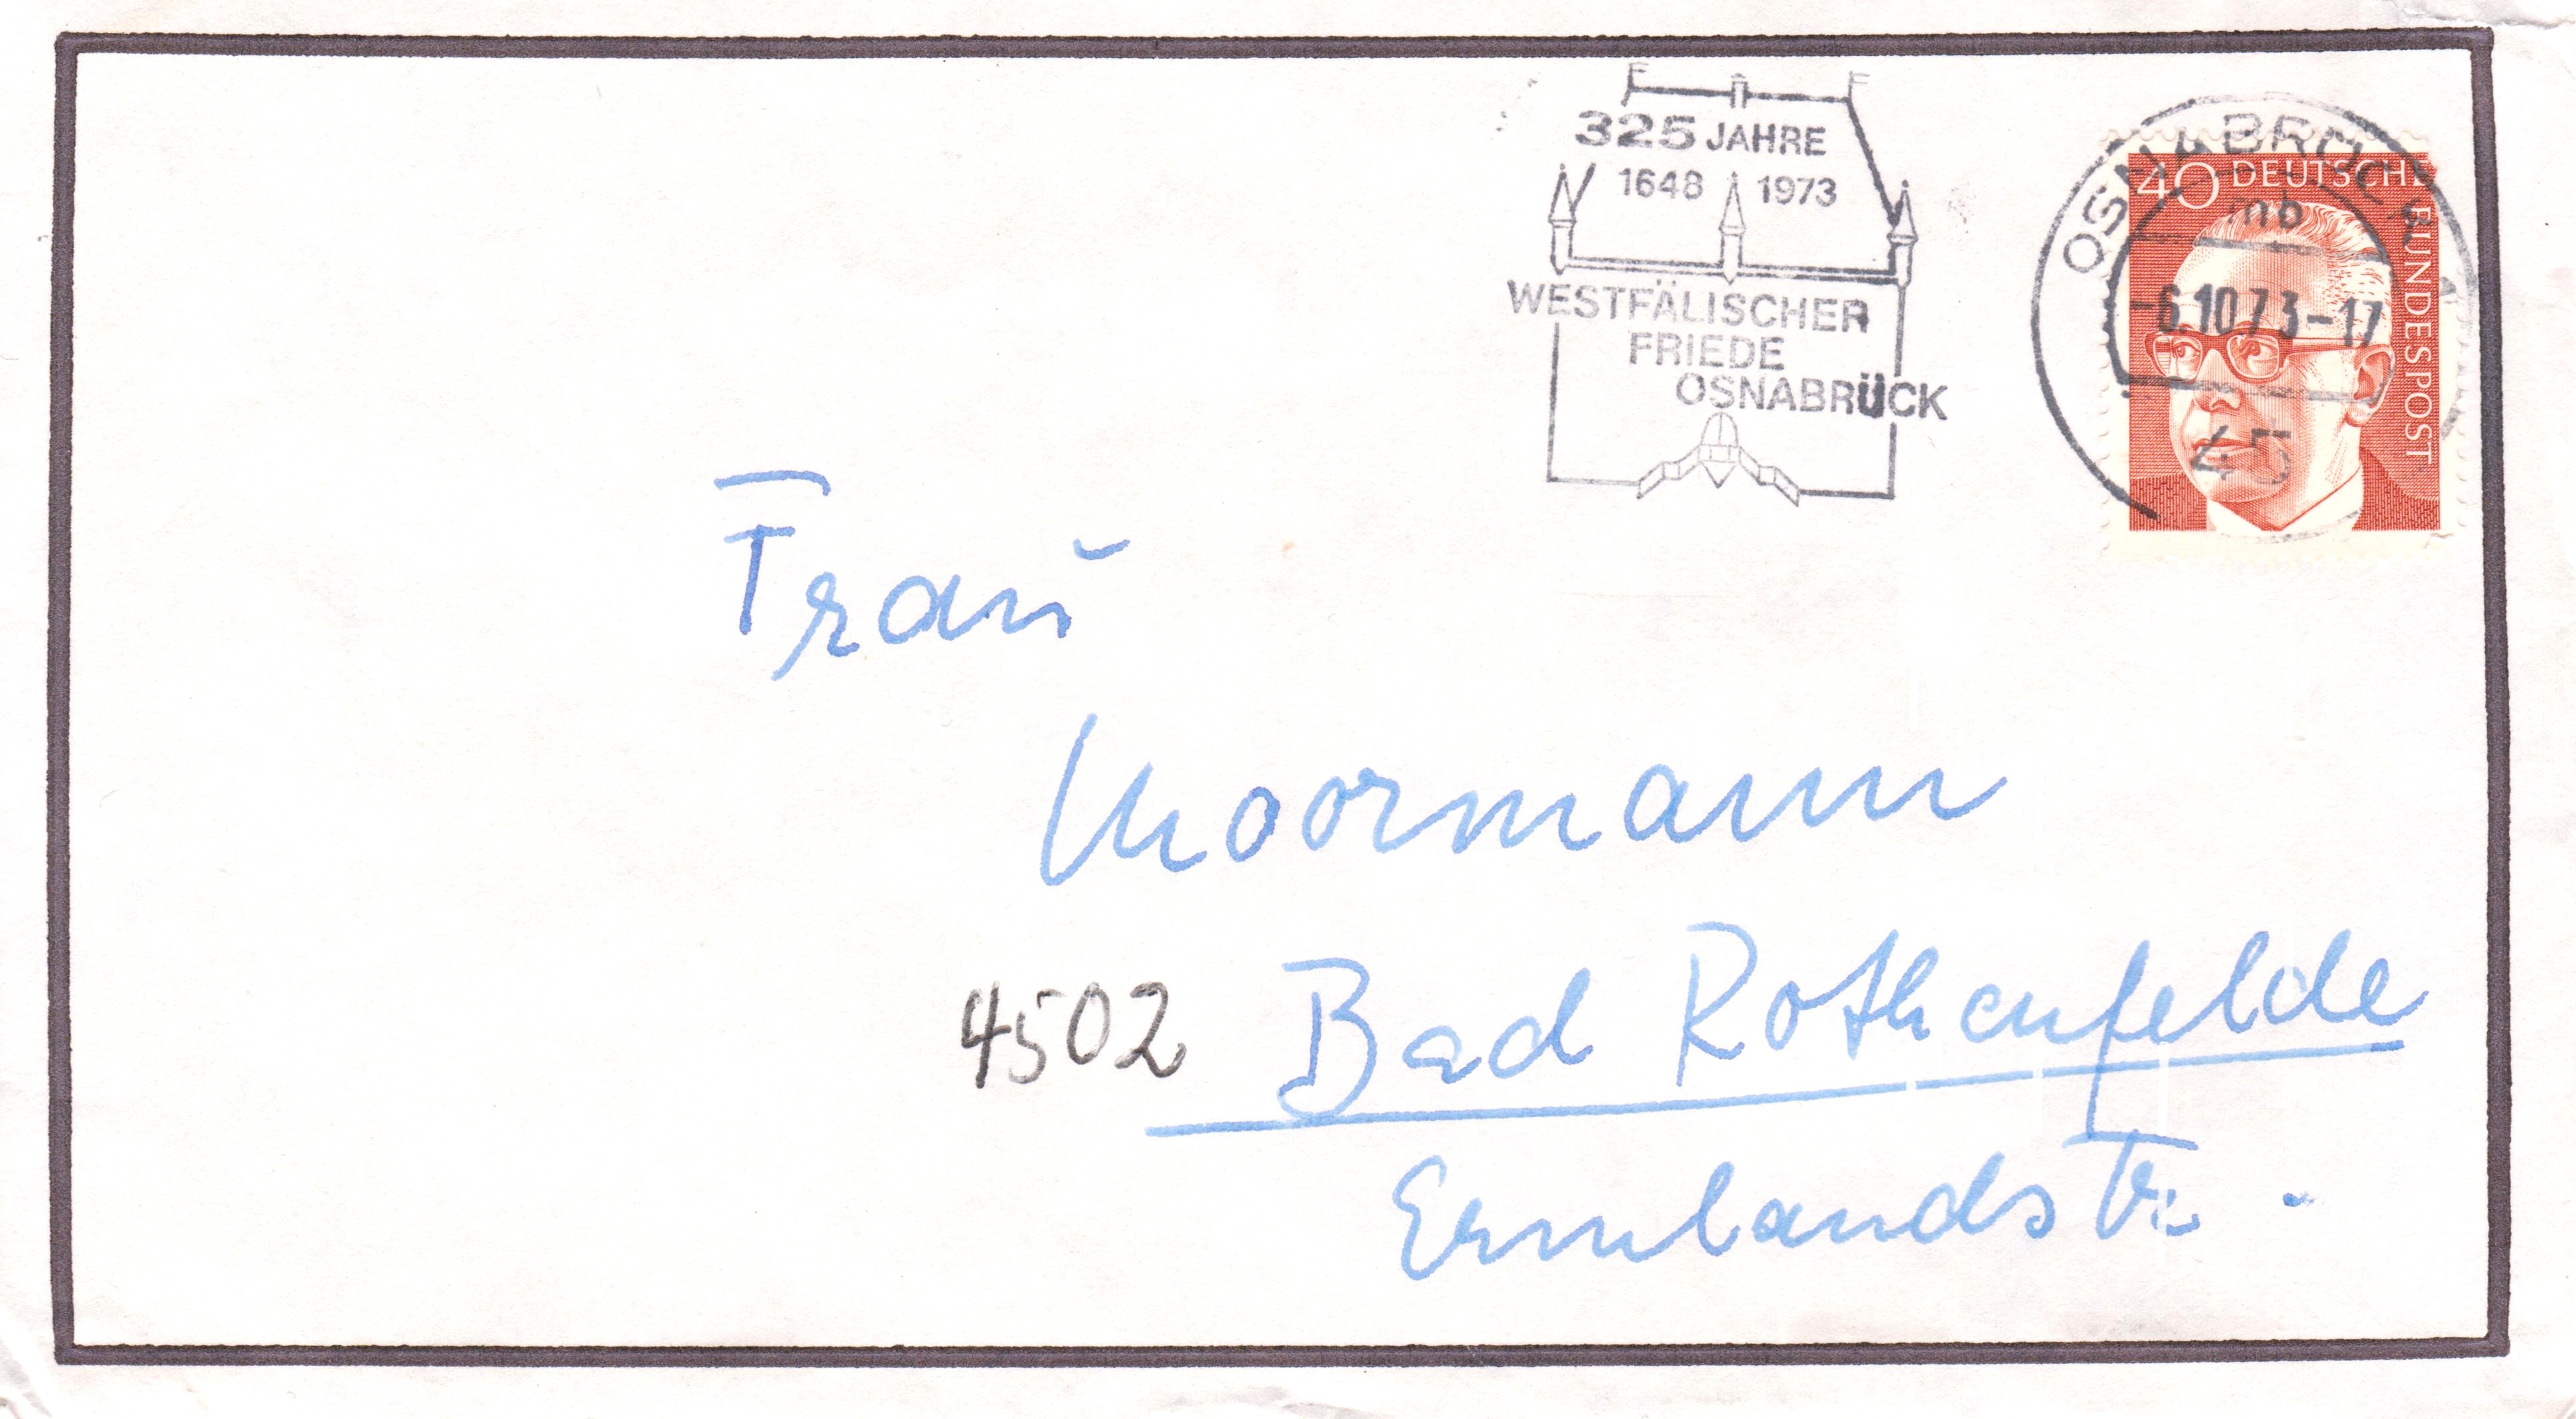 325 JAHRE
1648 1973
WESTFÄLISCHER
FRIEDE
OSNABRÜCK
OSNABRÜCK
mb
-6.10.73-17
45
40 DEUTSCHE
BUNDESPOST
Frau
Moormann
4502 Bad Rothenfelde
Ermlandstr.